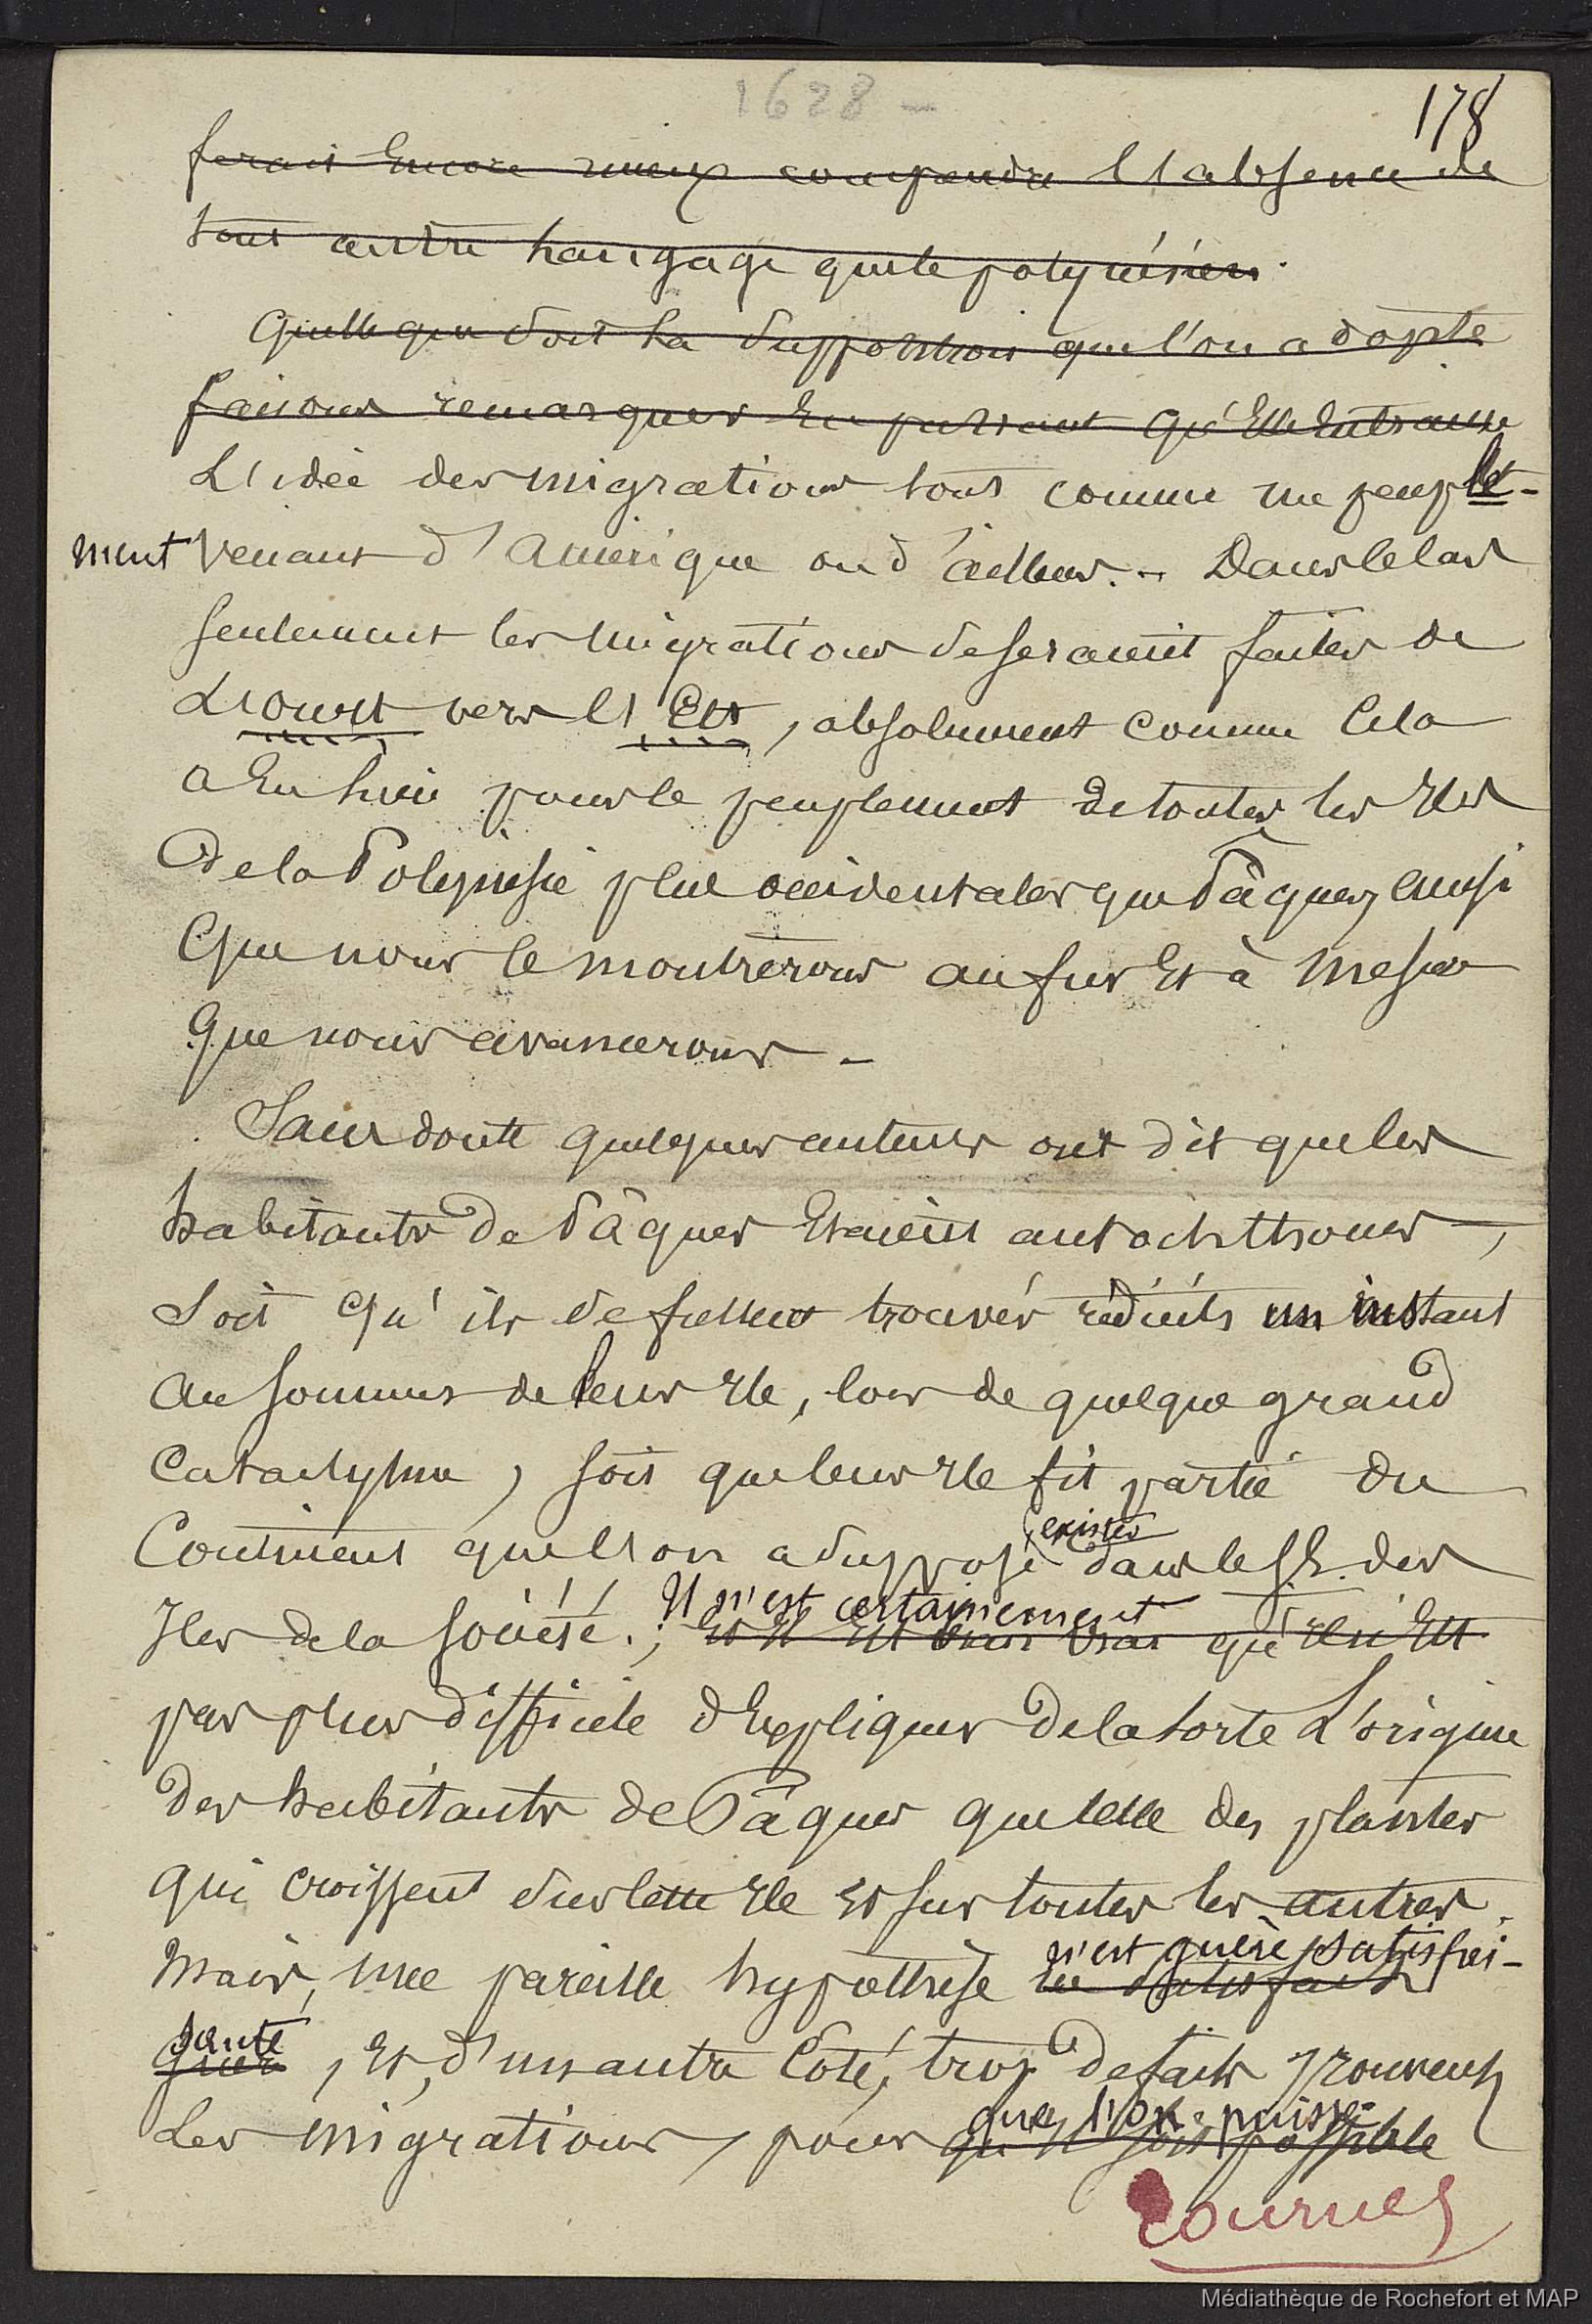 1628 -
178
ferait encore mieux comprendre l'absence de
tout autre langage que le polynésien.
Quelle que soit la supposition que l'on adopte
faisons remarquer en passant qu'elle entraine
L'idée des migrations tout comme un peuple-
ment venant d'Amérique ou d'ailleurs. - Dans ce cas
seulement les migrations se seraient faites de
L'ouest vers l'Est, absolument comme cela
a eu lieu pour le peuplement de toutes les Iles
de la Polynésie plus occidentales que Pâques, ainsi
que nous le montrerons au fur et à mesure
que nous avancerons -
Sans doute quelques auteurs ont dit que les
habitants de Pâques étaient autochthones,
soit qu'ils se fussent trouvés réduits un instant
au sommet de leur Ile, lors de quelque grand
cataclysme, soit que leur Ile fit partie du
Continent que l'on a supposé exister dans le S.E. des
Iles de la Société. ; Il n'est certainement
et il est bien vrai qu'il n'est
pas plus difficile d'expliquer de la sorte L'origine
des habitants de Pâques que celle des plantes
qui croissent sur cette Ile et sur toutes les autres.
n'est guère satisfai-
Mais, une pareille hypothèse ne satisfait
sante
guère, et, d'un autre côté, trop de faits prouvent
que l'on puisse
Les migrations, pour qu'il soit possible
Tournez
Médiathèque de Rochefort et MAP